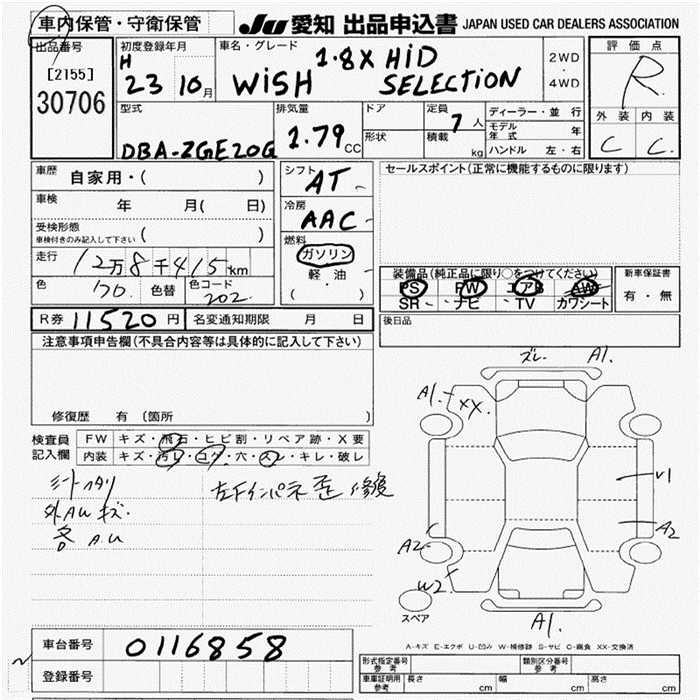 車内保管・守衛保管
JU 愛知 出品申込書 JAPAN USED CAR DEALERS ASSOCIATION
出品番号
[2155]
30706
初度登録年月
H
23 10月
車名・グレード
1.8X HID
WISH SELECTION
2WD
・
4WD
評価点
R
外装 内装
C C
型式
DBA-ZGE20G
排気量
1.79 CC
ドア
形状
定員
7人
積載
kg
ディーラー・並行
モデル年式 年
ハンドル 左・右
車歴 自家用・( )
車検 年 月( 日)
受検形態
車検付きのみ記入して下さい ( )
走行 12万8千415km
色 色替 色コード
202
シフト
AT
冷房
AAC
燃料
ガソリン
軽・油
( )
セールスポイント(正常に機能するものに限ります)
装備品(純正品に限り○をつけてください)
PS PW エアB AW
SR ナビ TV カワシート
新車保証書
有・無
R券 11520円 名変通知期限 月 日
後日品
注意事項申告欄(不具合内容等は具体的に記入して下さい)
修復歴 有 (箇所
検査員
記入欄
FW キズ・飛石・ヒビ割・リペア跡・X要
内装 キズ・汚レ・コゲ・穴・スレ・キレ・破レ
シートヘタリ
外AWキズ
各A.U
左リインパネ歪 修復
ズレ A1.
A1. XX.
V1
A2
A2
W2.
A1.
スペア
A-キズ E-エクボ U-凹み W-補修跡 S-サビ C-腐食 XX-交換済
車台番号 0116858
登録番号
形式指定番号 参考
類別区分番号 参考
車庫証明用 参考 長さ cm 幅 cm 高さ cm